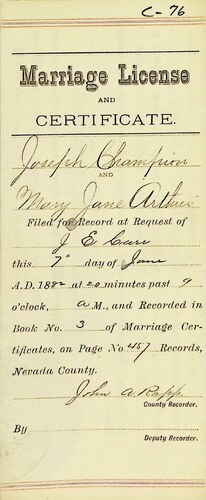 C-76
Marriage License
AND
CERTIFICATE.
Joseph Champion
AND
Mary Jane Arthur
Filed for Record at Request of
J E Carr
this 7th day of June
A.D. 1882 at 20 minutes past 9
o'clock, a M., and Recorded in
Book No. 3 of Marriage Cer-
tificates, on Page No. 457 Records,
Nevada County.
John A. Rapp.
County Recorder.
By
Deputy Recorder.